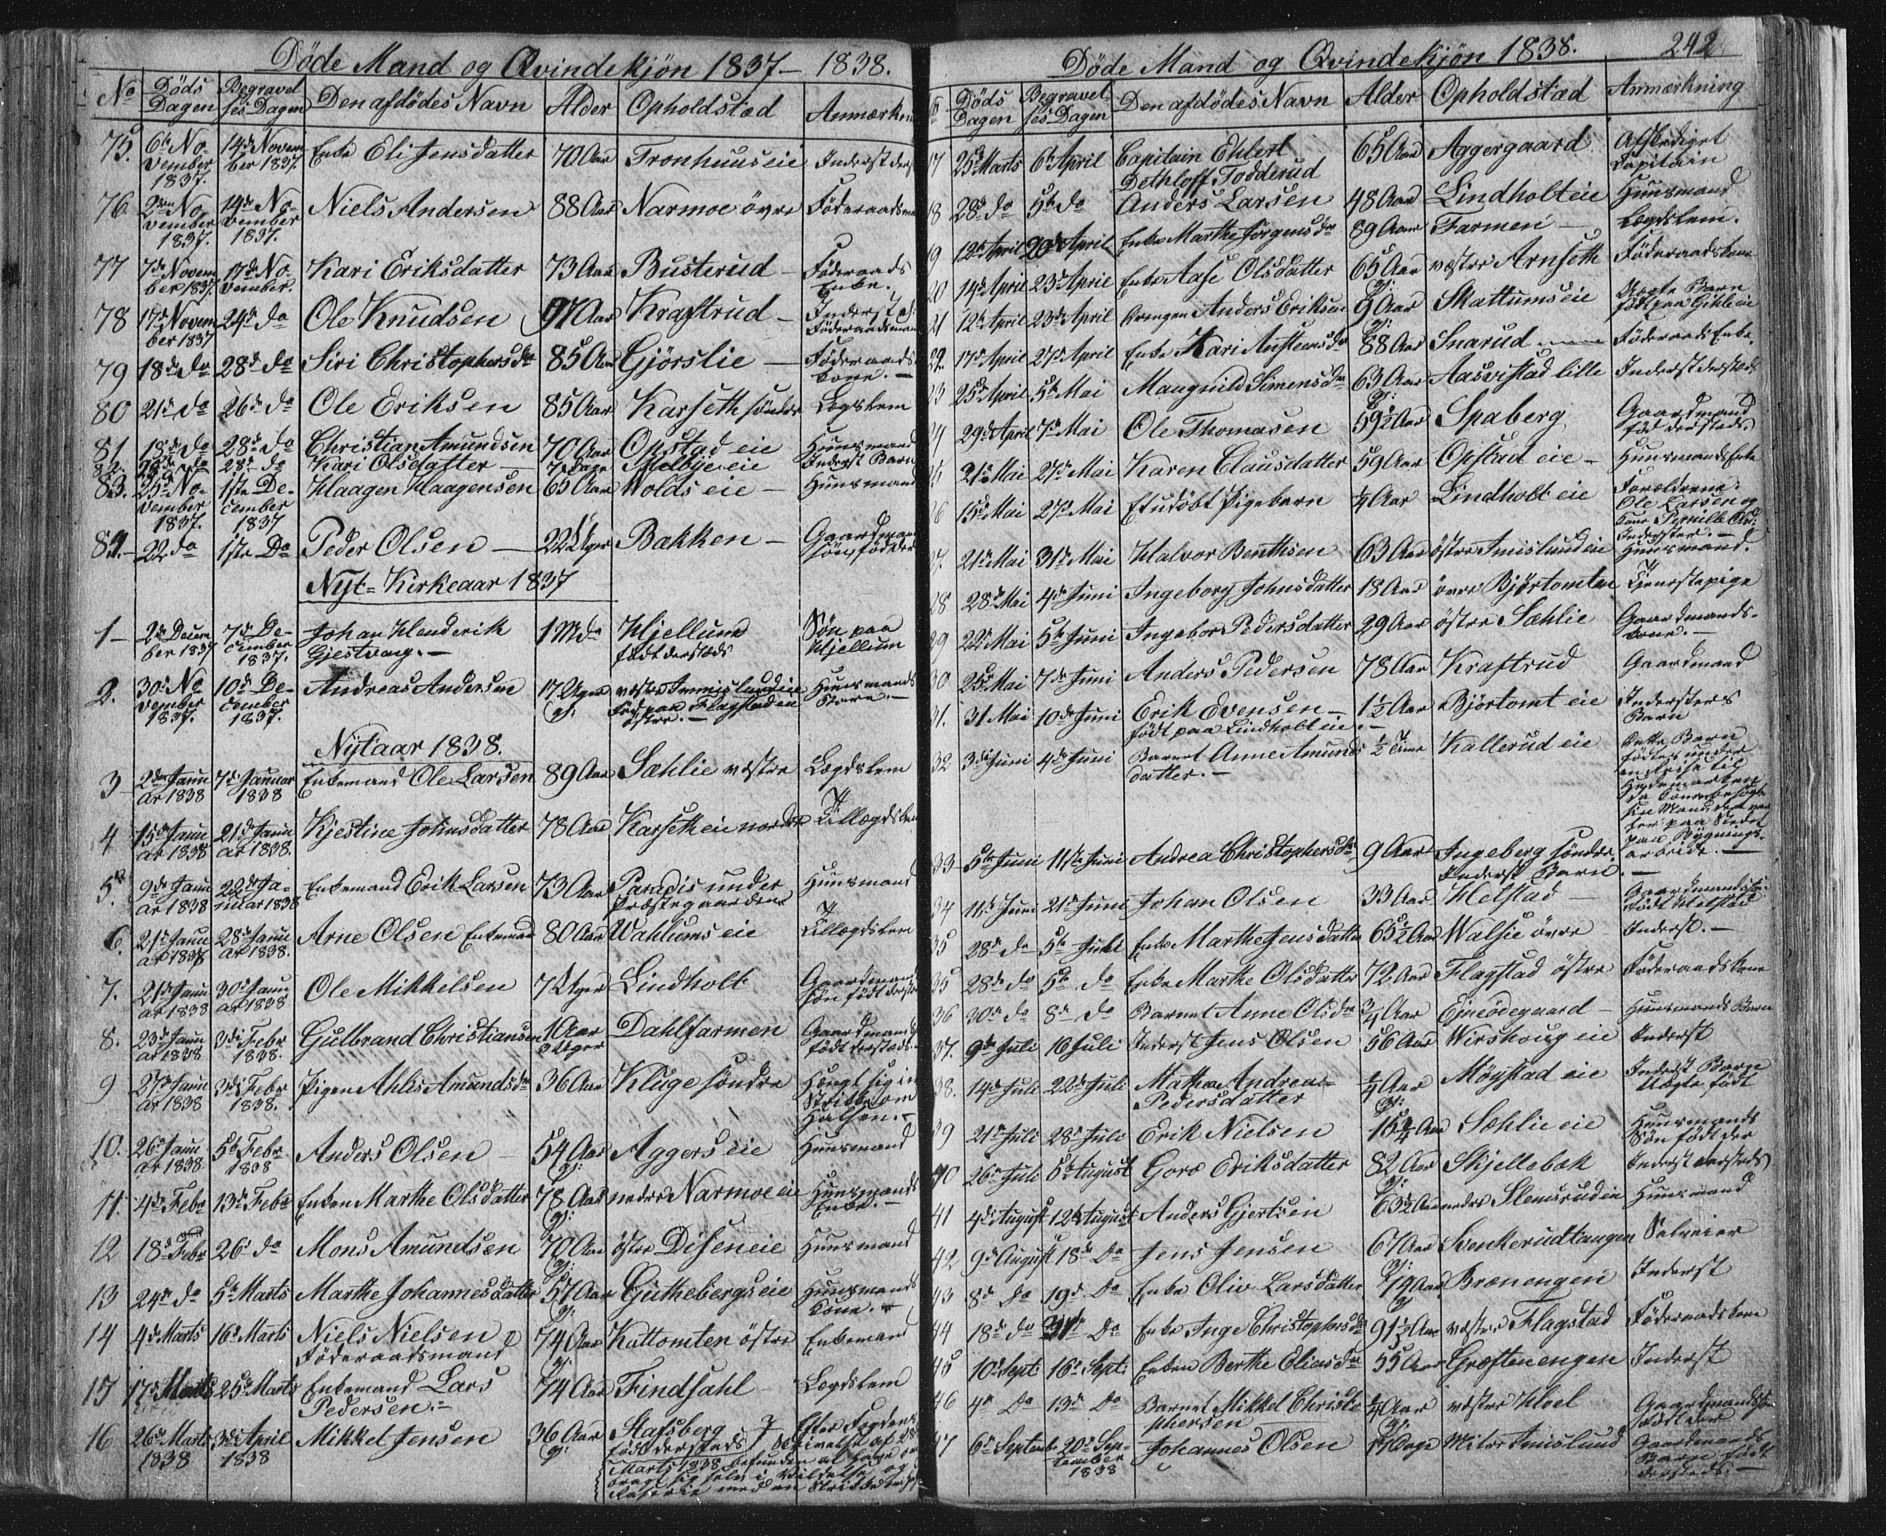 Døde Mand og Qvindekjön 1837 – 1838.
No Døds Dagen Begravelses Dagen Den afdödes Navn Alder Opholdstæd Anmærkn
75. 6te November 1837. 14de November 1837. Enke Eli Jensdatter 70 Aar Tronhuus eie Inderst derst
76 2den November 1837. 14de November 1837. Niels Andersen 88 Aar Narmoe övre Föderaadsma
77 7de November 1837. 17de November. Kari Eriksdatter 73 Aar Busterud – Föderaads Enke.
78 17de November 1837 24de do Ole Knudsen 91 Aar Kraftrud – Inderst Föderaadsman
79 18de do 28de do Siri Christophersdr 85 Aar Gjörslie – Föderaads Kone. –
80 21de do 26de do Ole Eriksen 85 Aar Karseth söndre Lægslem
81. 18de do 28de do Christian Amundsen 70 Aar Opstad eie Huusmand
82. 28de do Kari Olsdatter – 7 Dage Melbye eie Inderst Barn
83. 25de November 1837. 1ste December 1837 Haagen Haagensen 65 Aar Wolds eie – Huusmand
84. – 22 do 1ste Do Peder Olsen – 22 Uger Bakken – Gaardman sön födder
Nyt-Kirkeaar 1837
1 – 2de December 1837 7de December 1837. Johan Henderik Gjestvang. – 1 Md Hjellum födt dersteds Sön paa Hjellum
2. 30de November 1837. 10de December 1837. Andreas Andersen 17 Uger vestre Immislund eie Föd paa Flagstad eie östre. – Huusmands
Nytaar 1838.
3 2den Januar 1838 7de Januar 1838 Enkemand Ole Larsen 89 Aar Sæhlie vestre Lægdslem
4 15de Januar 1838 21de Januar 1838. Kjestine Johnsdatter 78 Aar Karseth eie nordre Tillægdslem
5. 9de Januar 1838 22de Januar 1838 Enkemand Erik Larsen 73 Aar Paradis under Præstegaarden Huusmand
6. 21de Januar 1838 28de Januar 1838. Arne Olsen Enkemand 80 Aar Wahlums eie Tillægdslem
7. 21de Januar 1838 30de Januar 1838 Ole Mikkelsen 7 Uger Lindholt Gaardman sön födt derste
8. 23de Januar 1838 3de Febr 1838. Gulbrand Christiansen 1 Aar Uger Dahlfarmen Gaardmand födt dersteds
9 27de Januar 1838 3de Febr 1838. Pigen Ahlis Amundsdr 36 Aar Kluge söndre Hængt sig i en Strikke om Halsen. –
10. 26de Januar 1838 5te Febr 1838 Anders Olsen – 54 Aar Aggers eie Huusmand
11. 4de Febr 13de Febr Enken Marthe Olsdatter 78 Aar nedre Narmoe eie Huusmands Enke. –
12 18de Febr 26de do Mons Amundsen 70 Aar öster Disen eie Huusmand
13 24de do 5te Marts Marthe Johannesdatter 57 Aar Guthebergs eie Huusmands Kone. –
14 4de Marts 16de Marts Niels Nielsen Föderaadsmand 74 Aar Kattomten östre Enkemand
15 17de Marts 25de Marts Enkemand Lars Pedersen. 74 Aar Findsahl Lægdslem
16 26de Marts 1838 3de April 1838 Mikkel Jensen 36 Aar Stafsberg födt dersteds
Marts 1838
Døde Mand og Qvindekjön 1838. 242
Døds Dagen Begravelses Dagen Den afdödes Navn Alder Opholdstæd Anmærkning
17 25de Marts 6te April Capitain Ehlert Dethloff Todderud 65 Aar Aggergaard Afskediget Capitain
18 28de do 5te do Anders Larsen 48 Aar Lindholt eie Huusmand
19 12de April 20de April Enke Marthe Jörgensdr 89 Aar Farmen – Lægdslem.
20 14de April 23de April Enke Aase Olsdatter 65 Aar vestre Arnseth Föderaadskone
21 12te April 23de April Drengen Anders Eriksen 9 Aar Skattums eie Uægte Barn
22. 17de April 27de April Enke Kari Austensdr 88 Aar Snarud Föderaads Enke.
23 25de April 5te Mai Maugnild Simensdr 63 Aar Aasvistad lille Inderst dersteds
24 29de April 7de Mai Ole Thomasen 59½ Aar Spaberg Gaardmand föd dersteds
25 21de Mai 27de Mai Karen Clausdatter 59 Aar Opstad eie – Huusmands Enke
26 15de Mai 27de Mai Et udöbt Pigebarn ¼ Aar Lindholt eie Forældrene: Ole Larsen og Kone Pernille Inderster. –
27. 21de Mai 31de Mai Halvor Benthsen 63 Aar östre Imislund eie Huusmand.
28 28de Mai 4de Juni Ingeborg Johnsdatter 18 Aar övre Björtomten Tjenestepige
29 22de Mai 5te Juni Ingebor Pedersdatter 29 Aar östre Sæhlie Gaardmandskone. –
30 25de Mai 7de Juni Anders Pedersen 78 Aar Kraftrud Gaardmand
31. 31 Mai 10de Juni Erik Evensen – födt paa Lindholt eie – 1½ Aar Björtomt eie Inderstens Barn
32 3de Juni 4de Juni Barnet Anne Amundsdatter. – ½ Time Kallerud eie Dette Barn födtes under en Reise til Hedemarken da Konen besögte sin Mand der var her paa Stedet paa Bygningsarbeide. –
33 5te Juni 11te Juni Andrea Christophersdr 9 Aar Ingeberg söndre Inderst Barn. –
34 11te Juni 21de Juni Johan Olsen 33 Aar Helstad – Gaardmandssön födt Helstad
35 28de do 5te Juli Enke Marthe Jensdatter 65½ Aar Walsie övre Inderst. –
35 28de do 5te do Enke Marthe Olsdatter 72 Aar Flagstad östre Föderaadskone
36 30de do 8de do Barnet Anne Olsdr ¾ Aar Ejneödegaard – Huusmands Barn
37. 9de Juli 16 Juli Inderst Jens Olsen 56 Aar Wirshoug eie Inderst
38. 14de Juli 22de Juli Mathea Andrea Pedersdatter ¼ Aar Möystad eie Inderst Barn Uægte födt
39 21de Juli 28de Juli Erik Nielsen 15¾ Aar Sæhlie eie Huusmands Sön födt der
40 26de Juli 5te August Goro Eriksdatter 82 Aar Skjellebæk Inderst dersteds
41 4de August 12te August Anders Gjertsen 63½ Aar nedre Slemsrud eie Huusmand
42 9de August 18de Do Jens Jensen 67 Aar Svenkerudtangen Selveier
43 8de Do 19de Do Enke Oliv Larsdatter 79 Aar Brænengen Inderst
44 18de do 31te Do Enke Inge Christophersdr 91½ Aar vestre Flagstad Föderaadskone
45 10de Sept: 16de Sept: Enken Berthe Eliasdr 55 Aar Græftenengen Inderst
46 4de Do 13de Do Barnet Mikkel Christophersen ¼ Aar vestre Kloel Gaardmandssön födt der
47 6te Septemb 20de September 1838 Johannes Olsen 17 Dage Mitre Imislund Gaardmands Barn födt dersteds. –